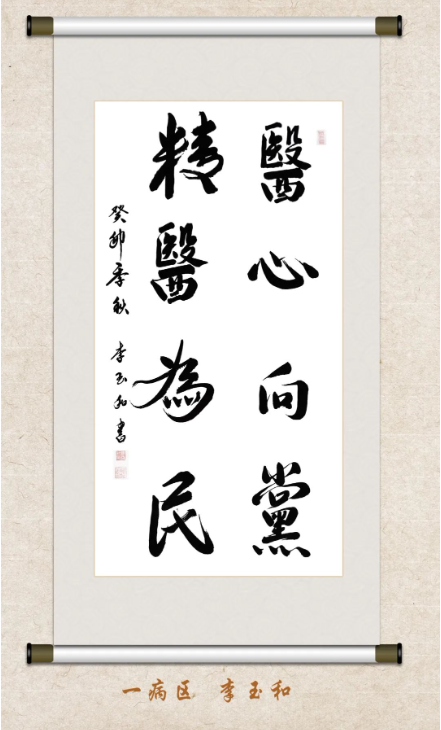 醫心向黨
精醫為民
癸卯季秋 李玉和書
一病区 李玉和